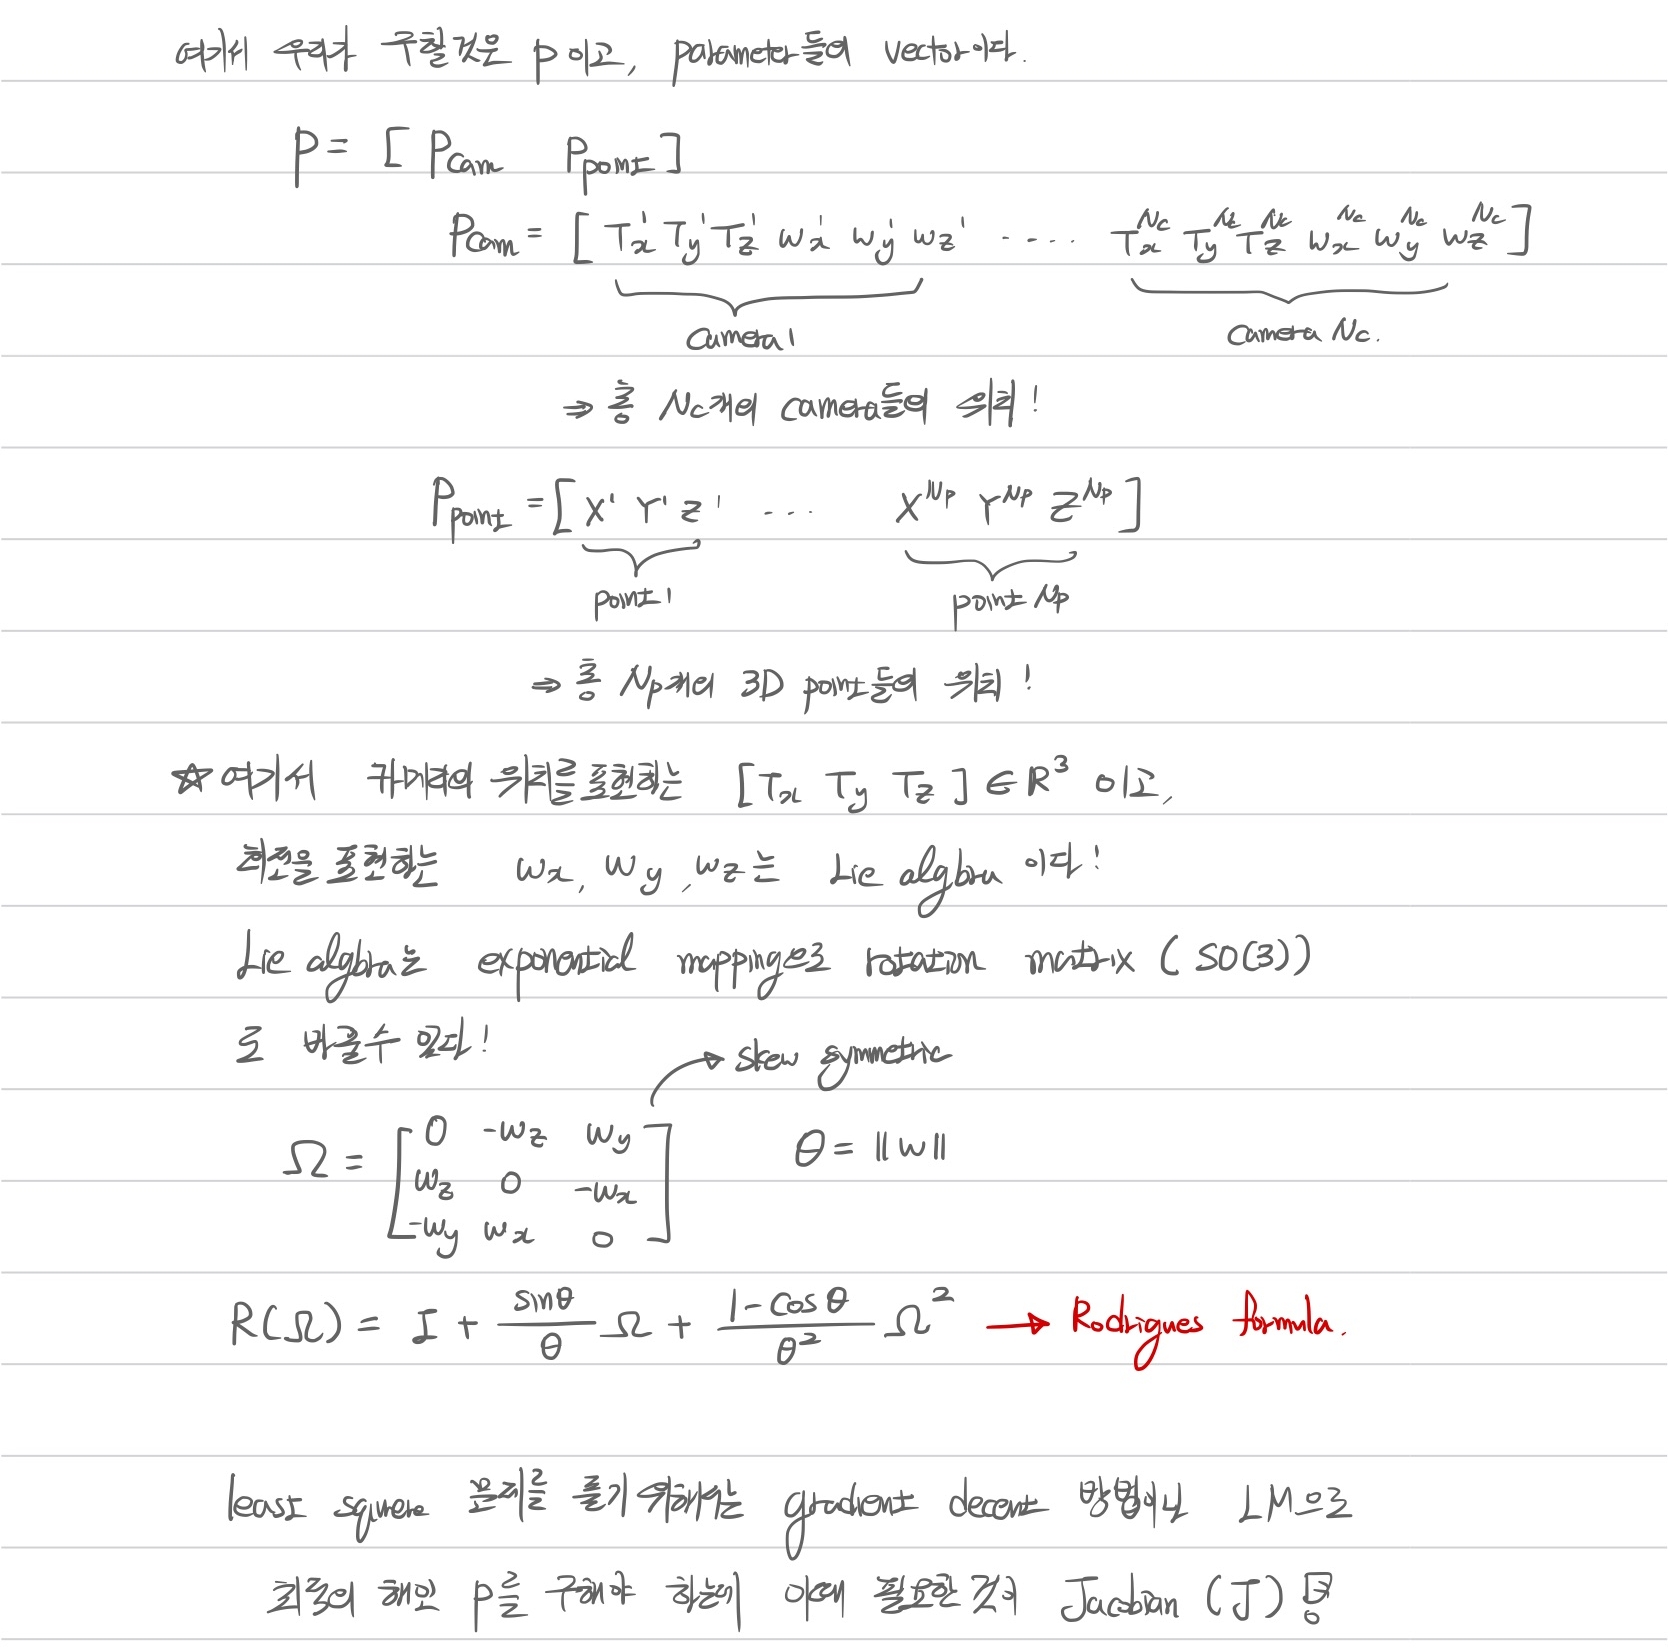 여기서 우리가 구할것은 p 이고, parameter들의 vector이다.
p = [ Pcam Ppoint ]
Pcam = [ Tx¹ Ty¹ Tz¹ wx¹ wy¹ wz¹ ..... Tx^Nc Ty^Nc Tz^Nc wx^Nc wy^Nc wz^Nc ]
camera 1 camera Nc.
⇒ 총 Nc개의 camera들의 위치!
Ppoint = [ X¹ Y¹ Z¹ ... X^Np Y^Np Z^Np ]
point 1 point Np
⇒ 총 Np개의 3D point들의 위치!
☆ 여기서 카메라의 위치를 표현하는 [ Tx Ty Tz ] ∈ R³ 이고,
회전을 표현하는 wx, wy, wz는 Lie algbra 이다!
Lie algbra는 exponential mapping으로 rotation matrix ( SO(3))
로 바꿀수 있다!
→ skew symmetric
Ω = [ 0 -wz wy
wz 0 -wx
-wy wx 0 ] θ = ||w||
R(Ω) = I + sinθ/θ Ω + (1-cosθ)/θ² Ω² → Rodrigues formula.
least squere 문제를 풀기 위해서는 gradient decent 방법이나 LM으로
최적의 해인 p를 구해야 하는데 이때 필요한 것이 Jacobian (J)